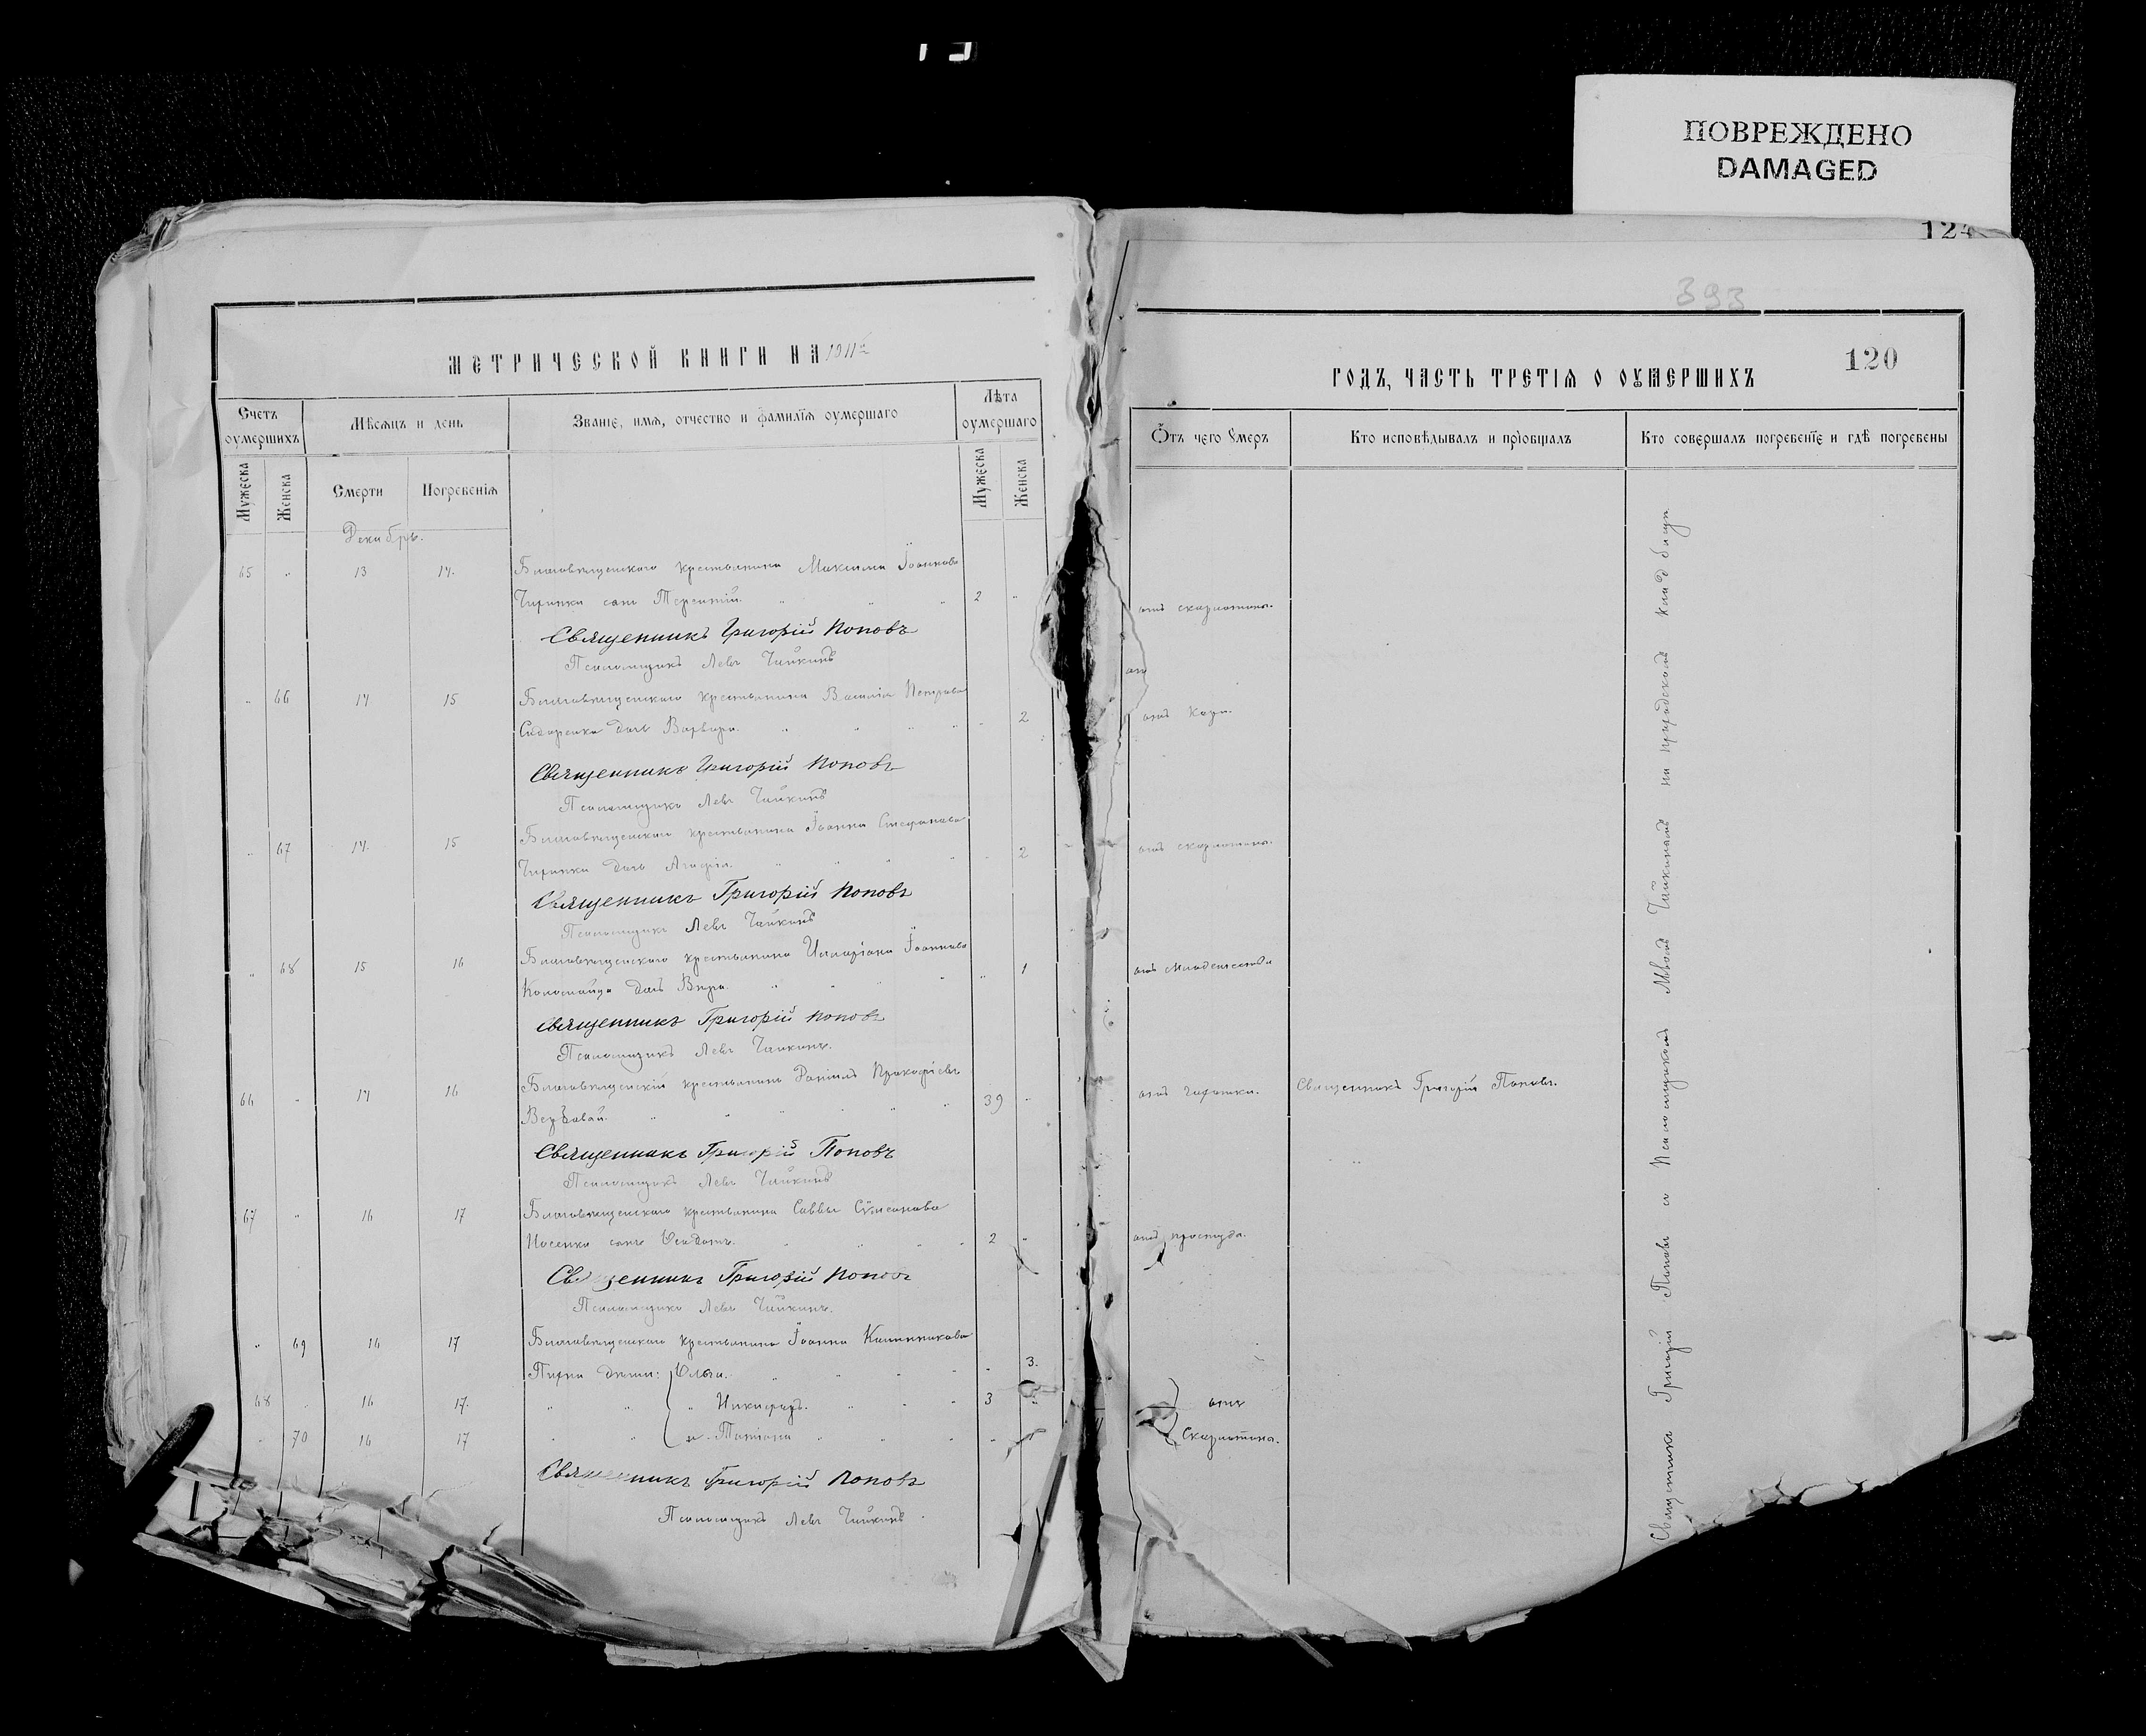 ПОВРЕЖДЕНО
DAMAGED
124
393
МЕТРИЧЕСКОЙ КНИГИ НА 1911й
Счетъ оумершихъ
Мѣсяцъ и день
Званіе, имя, отчество и фамилія оумершаго
Лѣта оумершаго
Мужеска
Женска
Смерти
Погребенія
Мужеска
Женска
Декабрь.
65 " 13 14. Благовѣщенскаго крестьянина Максима Іоаннова
Чиринки сынъ Терентій. " " " 2 "
Священникъ Григорій Поповъ
Псаломщикъ Левъ Чайкинъ
" 66 14 15 Благовѣщенскаго крестьянина Василія Петрова
Сидоренка дочь Варвара. " " " " " 2
Священникъ Григорій Поповъ
Псаломщикъ Левъ Чайкинъ
" 67 14. 15 Благовѣщенскаго крестьянина Іоанна Стефанова
Чиринки дочь Агафія. " " " " " 2
Священникъ Григорій Поповъ
Псаломщикъ Левъ Чайкинъ
" 68 15 16 Благовѣщенскаго крестьянина Илларіона Іоаннова
Коломойца дочь Вѣра. " " " " " 1
Священникъ Григорій Поповъ
Псаломщикъ Левъ Чайкинъ.
66 " 14 16 Благовѣщенскій крестьянинъ Даніилъ Прокофіевъ
" " " " " 39 "
Священникъ Григорій Поповъ
Псаломщикъ Левъ Чайкинъ
67 " 16 17 Благовѣщенскаго крестьянина Саввы Сѵмеонова
Носенко сынъ Ѳеодотъ. " " " " 2 "
Священникъ Григорій Поповъ
Псаломщикъ Левъ Чайкинъ.
" 69 16 17 Благовѣщенскаго крестьянина Іоанна Каллиникова
дѣти: Ольга. " " " " " 3.
68 " 16 17. " " " Никифоръ. " " " 3 "
" 70 16 17 " " и Татіана " " " "
Священникъ Григорій Поповъ
Псаломщикъ Левъ Чайкинъ
120
ГОДЪ, ЧАСТЬ ТРЕТІЯ О ОУМЕРШИХЪ
Ѿтъ чего Умеръ
Кто исповѣдывалъ и пріобщалъ
Кто совершалъ погребеніе и гдѣ погребены
отъ скарлатины.
от
отъ Кори.
отъ скарлатины.
отъ младенчества
отъ чахотки. Священникъ Григорій Поповъ.
отъ простуды.
отъ
Скарлатины.
Священникъ Григорій Поповъ съ Псаломщикомъ Львомъ Чайкинымъ на приходскомъ кладбищѣ